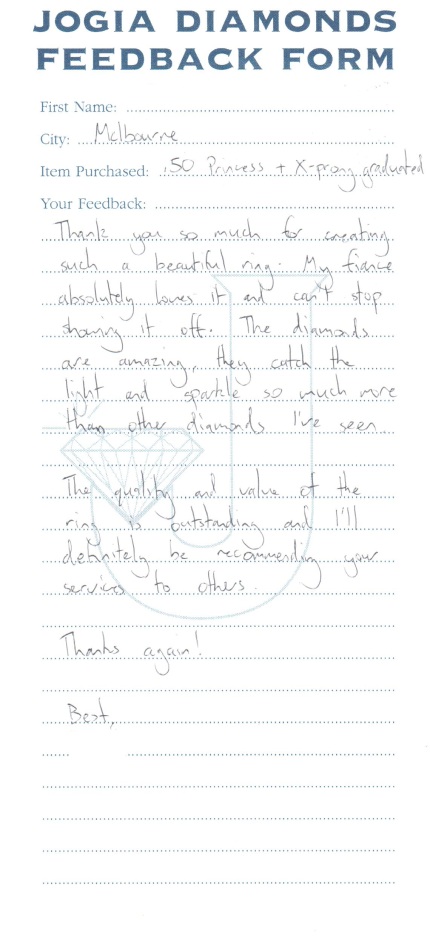 JOGIA DIAMONDS
FEEDBACK FORM
First Name:
City: Melbourne
Item Purchased: .50 Princess + X-prong graduated
Your Feedback:
Thank you so much for creating
such a beautiful ring. My fiance
absolutely loves it and can't stop
showing it off. The diamonds
are amazing, they catch the
light and sparkle so much more
than other diamonds I've seen
The quality and value of the
ring is outstanding and I'll
definitely be recommending your
services to others.
Thanks again!
Best,